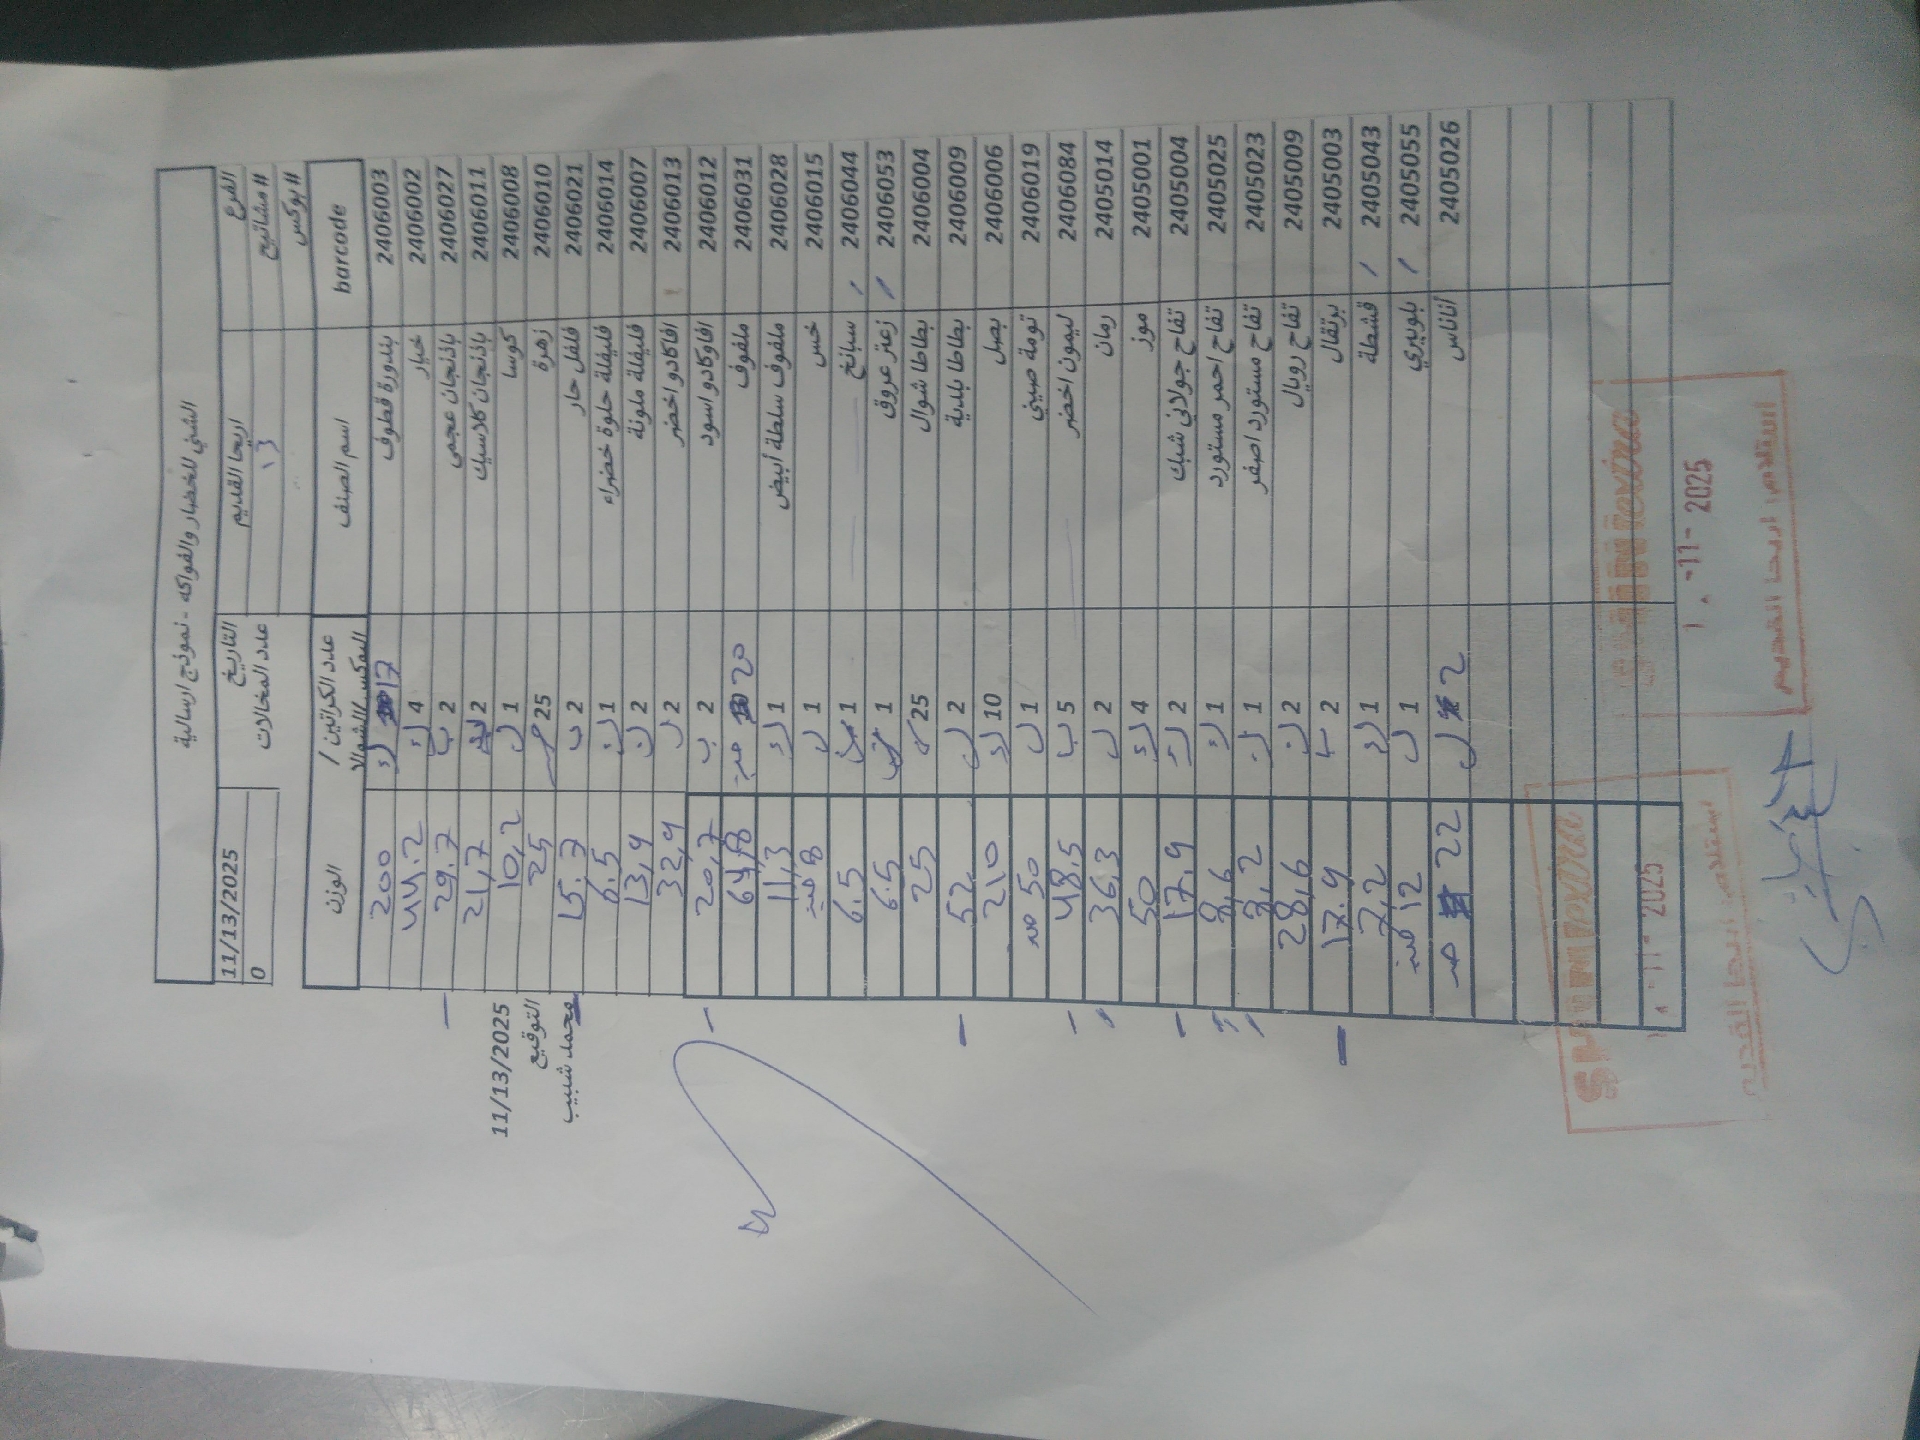 الشني للخضار والفواكه - نموذج ارسالية
الفرع اريحا القديم التاريخ 11/13/2025
# مشاتيح ١٣ عدد المخالات 0
# بوكس
barcode اسم الصنف عدد الكراتين / البوكس/الشوالا الوزن
2406003 بندورة قطوف 17 200
2406002 خيار 4 44.2
2406027 باذنجان عجمي 2 ب 29.7
2406011 باذنجان كلاسيك 2 21,7
2406008 كوسا 1 10,2
2406010 زهرة 25 25
2406021 فلفل حار 2 ب 15.7
2406014 فليفلة حلوة خضراء 1 6.5
2406007 فليفلة ملونة 2 13,9
2406013 افاكادو اخضر 2 32,9
2406012 افاوكادو اسود 2 ب 20,7
2406031 ملفوف 20
2406028 ملفوف سلطة أبيض 1 11,3
2406015 خس 1 8
2406044 سبانخ 1 6.5
2406053 زعتر عروق 1 6.5
2406004 بطاطا شوال 25 25
2406009 بطاطا بلدية 2 52
2406006 بصل 10 210
2406019 تومة صيني 1 50
2406084 ليمون اخضر 5 ب 48,5
2405014 رمان 2 36,3
2405001 موز 4 50
2405004 تفاح جولاني شبك 2 17,9
2405025 تفاح احمر مستورد 1
2405023 تفاح مستورد اصفر 1
2405009 تفاح رويال 2 28,6
2405003 برتقال 2 ب 17.9
2405043 قشطة 1 7,2
2405055 بلوبيري 1 12
2405026 أناناس 2 22
11/13/2025
التوقيع
محمد شلبيب
-11- 2025
استلام اريحا القديم
SHINI extra
-11- 2025
استلام اريحا القديم